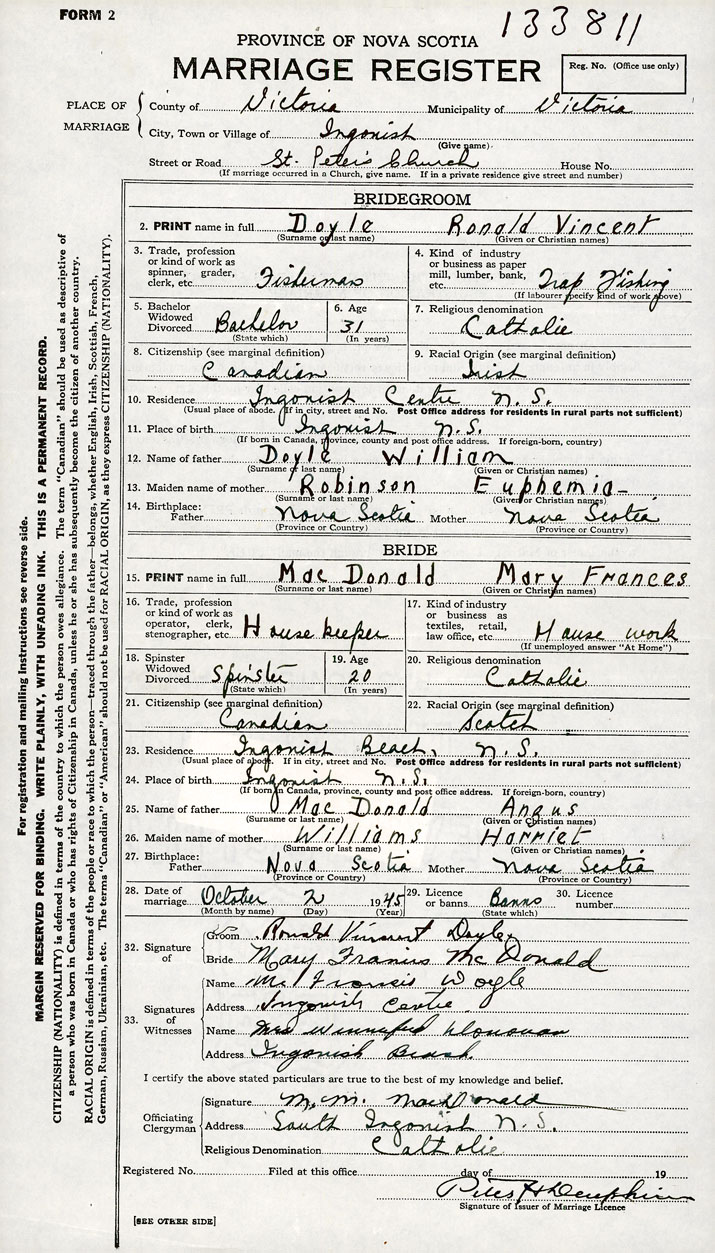 FORM 2
133811
PROVINCE OF NOVA SCOTIA
MARRIAGE REGISTER
Reg. No. (Office use only)
PLACE OF MARRIAGE
County of Victoria Municipality of Victoria
City, Town or Village of Ingonish
(Give name)
Street or Road St. Peter's Church House No.
(If marriage occurred in a Church, give name. If in a private residence give street and number)
BRIDEGROOM
2. PRINT name in full Doyle Ronald Vincent
(Surname or last name) (Given or Christian names)
3. Trade, profession or kind of work as spinner, grader, clerk, etc. Fisherman
4. Kind of industry or business as paper mill, lumber, bank, etc. Trap Fishing
(If labourer specify kind of work above)
5. Bachelor Widowed Divorced Bachelor
(State which)
6. Age 31
(In years)
7. Religious denomination Catholic
8. Citizenship (see marginal definition) Canadian
9. Racial Origin (see marginal definition) Irish
10. Residence Ingonish Centre N.S.
(Usual place of abode. If in city, street and No. Post Office address for residents in rural parts not sufficient)
11. Place of birth Ingonish N.S.
(If born in Canada, province, county and post office address. If foreign-born, country)
12. Name of father Doyle William
(Surname or last name) (Given or Christian names)
13. Maiden name of mother Robinson Euphemia
(Surname or last name) (Given or Christian names)
14. Birthplace: Father Nova Scotia Mother Nova Scotia
(Province or Country) (Province or Country)
BRIDE
15. PRINT name in full Mac Donald Mary Frances
(Surname or last name) (Given or Christian names)
16. Trade, profession or kind of work as operator, clerk, stenographer, etc. House keeper
17. Kind of industry or business as textiles, retail, law office, etc. House work
(If unemployed answer "At Home")
18. Spinster Widowed Divorced Spinster
(State which)
19. Age 20
(In years)
20. Religious denomination Catholic
21. Citizenship (see marginal definition) Canadian
22. Racial Origin (see marginal definition) Scotch
23. Residence Ingonish Beach, N.S.
(Usual place of abode. If in city, street and No. Post Office address for residents in rural parts not sufficient)
24. Place of birth Ingonish N.S.
(If born in Canada, province, county and post office address. If foreign-born, country)
25. Name of father Mac Donald Angus
(Surname or last name) (Given or Christian names)
26. Maiden name of mother Williams Harriet
(Surname or last name) (Given or Christian names)
27. Birthplace: Father Nova Scotia Mother Nova Scotia
(Province or Country) (Province or Country)
28. Date of marriage October 2 1945
(Month by name) (Day) (Year)
29. Licence or banns Banns
(State which)
30. Licence number
32. Signature of
Groom Ronald Vincent Doyle
Bride Mary Francis McDonald
33. Signatures of Witnesses
Name Mr. Francis Doyle
Address Ingonish Centre
Name Mrs Winnifred Donovan
Address Ingonish Beach
I certify the above stated particulars are true to the best of my knowledge and belief.
Officiating Clergyman
Signature M. M. MacDonald
Address South Ingonish N.S.
Religious Denomination Catholic
Registered No. Filed at this office day of 19
Signature of Issuer of Marriage Licence
[SEE OTHER SIDE]
For registration and mailing instructions see reverse side.
MARGIN RESERVED FOR BINDING. WRITE PLAINLY, WITH UNFADING INK. THIS IS A PERMANENT RECORD.
CITIZENSHIP (NATIONALITY) is defined in terms of the country to which the person owes allegiance. The term "Canadian" should be used as descriptive of
a person who was born in Canada or who has rights of Citizenship in Canada, unless he or she has subsequently become the citizen of another country.
RACIAL ORIGIN is defined in terms of the people or race to which the person—traced through the father—belongs, whether English, Irish, Scottish, French,
German, Russian, Ukrainian, etc. The terms "Canadian" or "American" should not be used for RACIAL ORIGIN, as they express CITIZENSHIP (NATIONALITY).